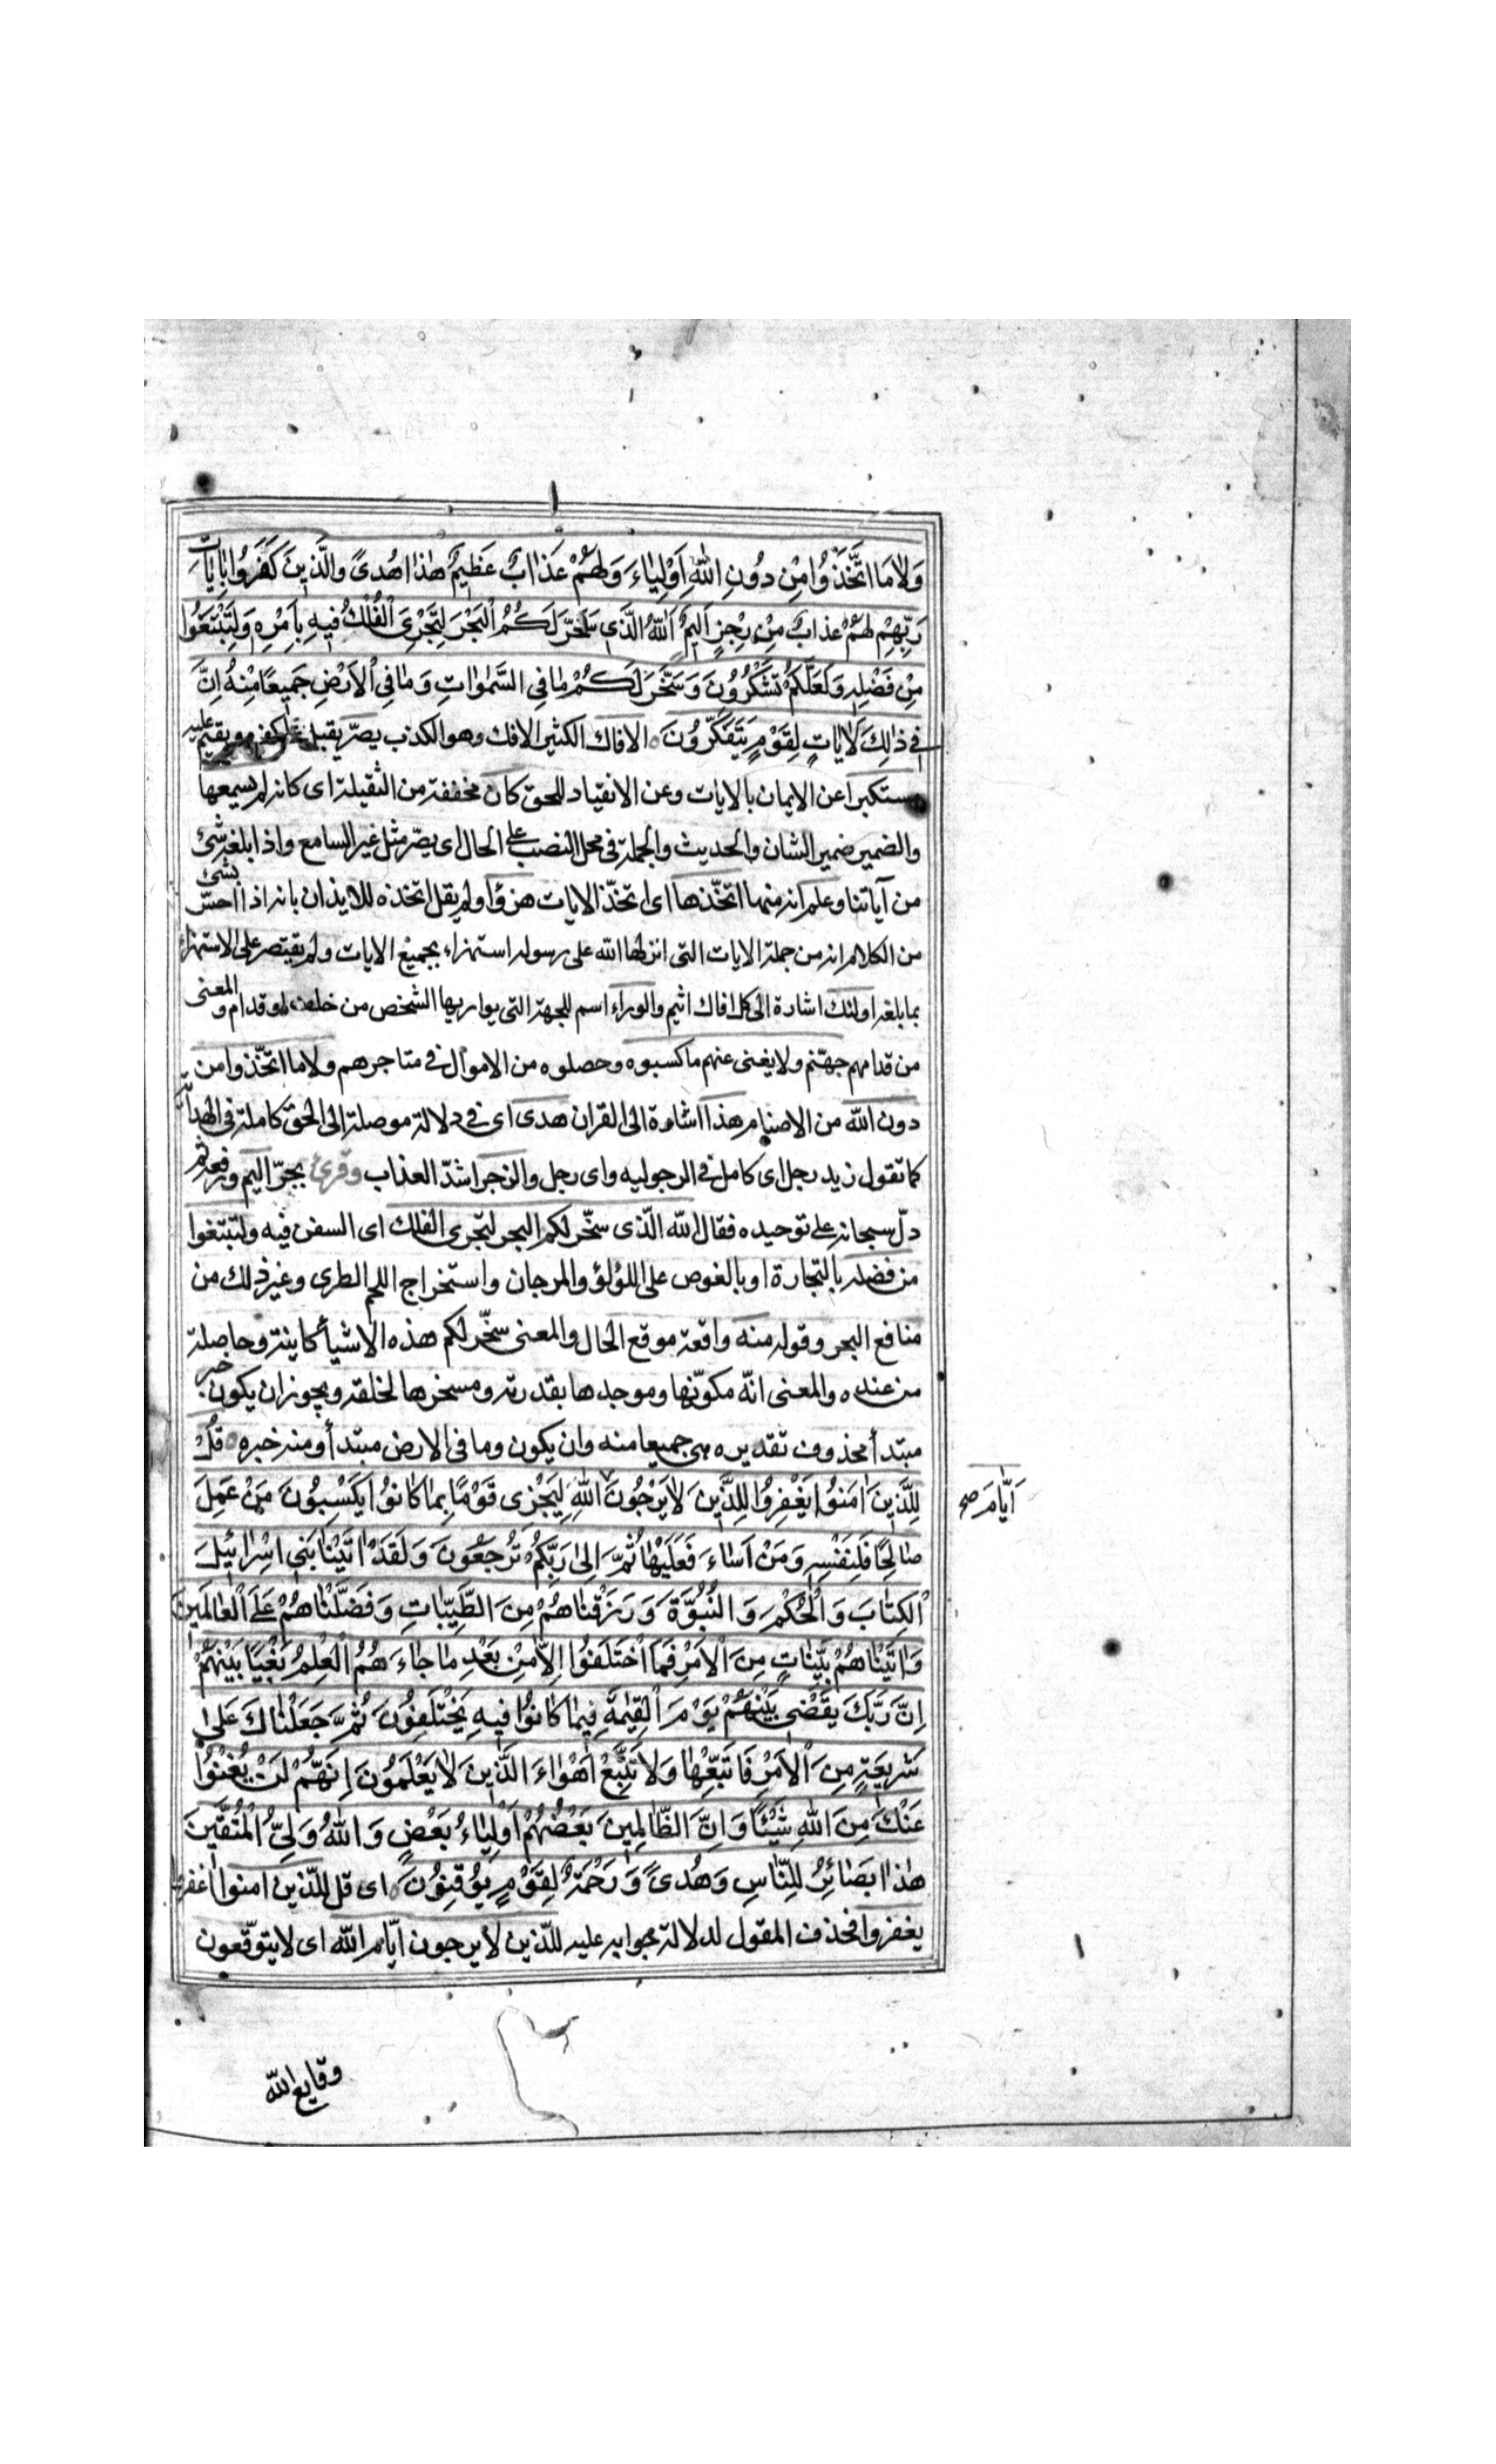 وَلٰا مَا اتَّخَذُوا مِنْ دُونِ اللّٰهِ اَوْلِيٰاءَ وَلَهُمْ عَذٰابٌ عَظِيمٌ هٰذٰا هُدىً والَّذِينَ كَفَرُوا بِايٰاتِ
رَبِّهِمْ لَهُمْ عَذابٌ مِنْ رِجْزٍ اَلِيمٌ اَللّٰهُ الَّذِي سَخَّرَ لَكُمُ الْبَحْرَ لِتَجْرِيَ الْفُلْكُ فِيهِ بِاَمْرِهِ وَلِتَبْتَغُوا
مِنْ فَضْلِهِ وَلَعَلَّكُمْ تَشْكُرُونَ وَسَخَّرَ لَكُمْ مٰا فِي السَّمٰوٰاتِ وَمٰا فِي الْاَرْضِ جَمِيعًا مِنْهُ اِنَّ
فِي ذٰلِكَ لَاٰيٰاتٍ لِقَوْمٍ يَتَفَكَّرُونَ الافاك الكثير الافك وهو الكذب يصرّ يقبل على كفره ويقيم عليه
مستكبرا عن الايمان بالايات وعن الانقياد للحق كان مخففة من الثقيلة اى كانه لم يسمعها
والضمير ضمير الشان والحديث والجملة فى محل النصب على الحال اى يصرّ مثل غير السامع واذا بلغه شئ
من آياتنا وعلم انه منها اتخّذها اى اتخّذ الايات هزؤا ولم يقل اتخذه للايذان بانه اذا احسّ بشئ
من الكلام انه من جملة الايات التى انزلها الله على رسوله استهزاء بجميع الايات ولم يقتصر على الاستهزاء
بما بلغه اولئك اشارة الى كل افاك اثيم والوراء اسم للجهة التى يواريها الشخص من خلف او قدام والمعنى
من قدامهم جهنّم ولا يغنى عنهم ما كسبوه وحصلوه من الاموال فى متاجرهم ولا ما اتخّذوا من
دون الله من الاصنام هذا اشارة الى القران هدى اى فى دلالة موصلة الى الحق كاملة فى الهداية
كما تقول زيد رجل اى كامل فى الرجوليه واى رجل والزجر اشدّ العذاب وقرئ بجرّ اليم ورفعه ثم
دلّ سبحانه على توحيده فقال الله الّذى سخّر لكم البحر لتجرى الفلك اى السفن فيه ولتبتغوا
من فضله بالتجارة او بالغوص على اللؤلؤ والمرجان واستخراج اللحم الطرى وغير ذلك من
منافع البحر وقوله منه واقعة موقع الحال والمعنى سخّر لكم هذه الاشيأ كاينة وحاصلة
من عنده والمعنى انّه مكوّنها وموجدها بقدرته ومسخرها لخلقه ويجوز ان يكون خبر
مبتدأ محذوف تقديره هى جميعا منه وان يكون وما فى الارض مبتدأ ومنه خبره قُلْ
لِلَّذِينَ اٰمَنُوا يَغْفِرُوا لِلَّذِينَ لٰا يَرْجُونَ اللّٰهِ لِيَجْزِيَ قَوْمًا بِمٰا كٰانُوا يَكْسِبُونَ مَنْ عَمِلَ
اَيّٰامَ صح
صٰالِحًا فَلِنَفْسِهِ وَمَنْ اَسٰاءَ فَعَلَيْهٰا ثُمَّ اِلىٰ رَبِّكُمْ تُرْجَعُونَ وَلَقَدْ اٰتَيْنٰا بَنِي اِسْرٰائِيلَ
الْكِتٰابَ وَالْحُكْمَ وَالنُّبُوَّةَ وَرَزَقْنٰاهُمْ مِنَ الطَّيِّبٰاتِ وَفَضَّلْنٰاهُمْ عَلَى الْعٰالَمِينَ
وَاٰتَيْنٰاهُمْ بَيِّنٰاتٍ مِنَ الْاَمْرِ فَمَا اخْتَلَفُوا اِلّٰا مِنْ بَعْدِ مٰا جٰاءَ هُمُ الْعِلْمُ بَغْيًا بَيْنَهُمْ
اِنَّ رَبَّكَ يَقْضِي بَيْنَهُمْ يَوْمَ الْقِيٰمَةِ فِيمٰا كٰانُوا فِيهِ يَخْتَلِفُونَ ثُمَّ جَعَلْنٰاكَ عَلىٰ
شَرِيعَةٍ مِنَ الْاَمْرِ فَاتَّبِعْهٰا وَلٰا تَتَّبِعْ اَهْوٰاءَ الَّذِينَ لٰا يَعْلَمُونَ اِنَّهُمْ لَنْ يُغْنُوا
عَنْكَ مِنَ اللّٰهِ شَيْئًا وَاِنَّ الظّٰالِمِينَ بَعْضُهُمْ اَوْلِيٰاءُ بَعْضٍ وَاللّٰهُ وَلِيُّ الْمُتَّقِينَ
هٰذٰا بَصٰائِرُ لِلنّٰاسِ وَهُدىً وَرَحْمَةٌ لِقَوْمٍ يُوقِنُونَ اى قل للّذين امنوا اغفروا
يغفروا فحذف المقول لدلالة جوابه عليه للّذين لا يرجون ايّام الله اى لا يتوقّعون
وقايع الله